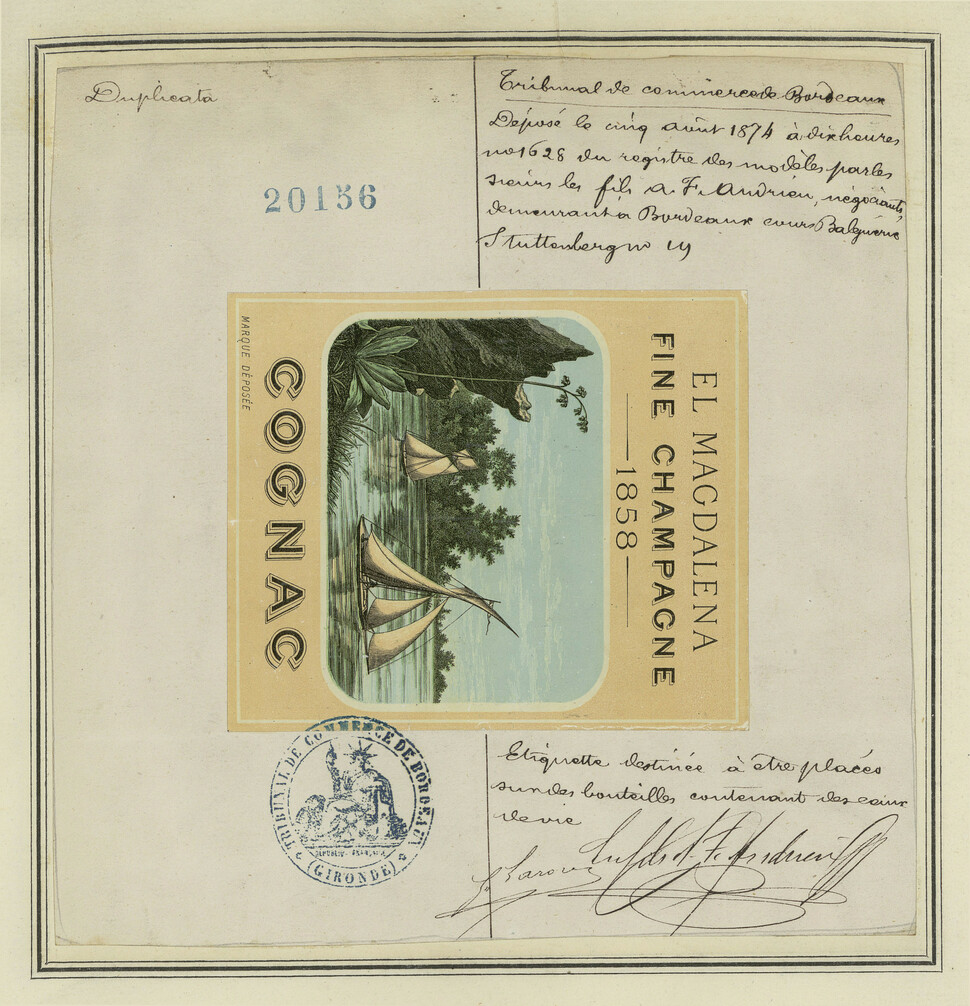 Duplicata
20156
Tribunal de commerce de Bordeaux
Déposé le cinq août 1874 à dix heures
no 1628 du registre des modèles par les
sieurs les fils A. F. Andrieu, négociants,
demeurant à Bordeaux cours Balguerie
Stuttenberg no 19
EL MAGDALENA
FINE CHAMPAGNE
1858
COGNAC
MARQUE DÉPOSÉE
TRIBUNAL DE COMMERCE DE BORDEAUX
RÉPUBLIQUE FRANÇAISE
(GIRONDE)
Etiquette destinée à être placée
sur des bouteilles contenant des eaux
de vie